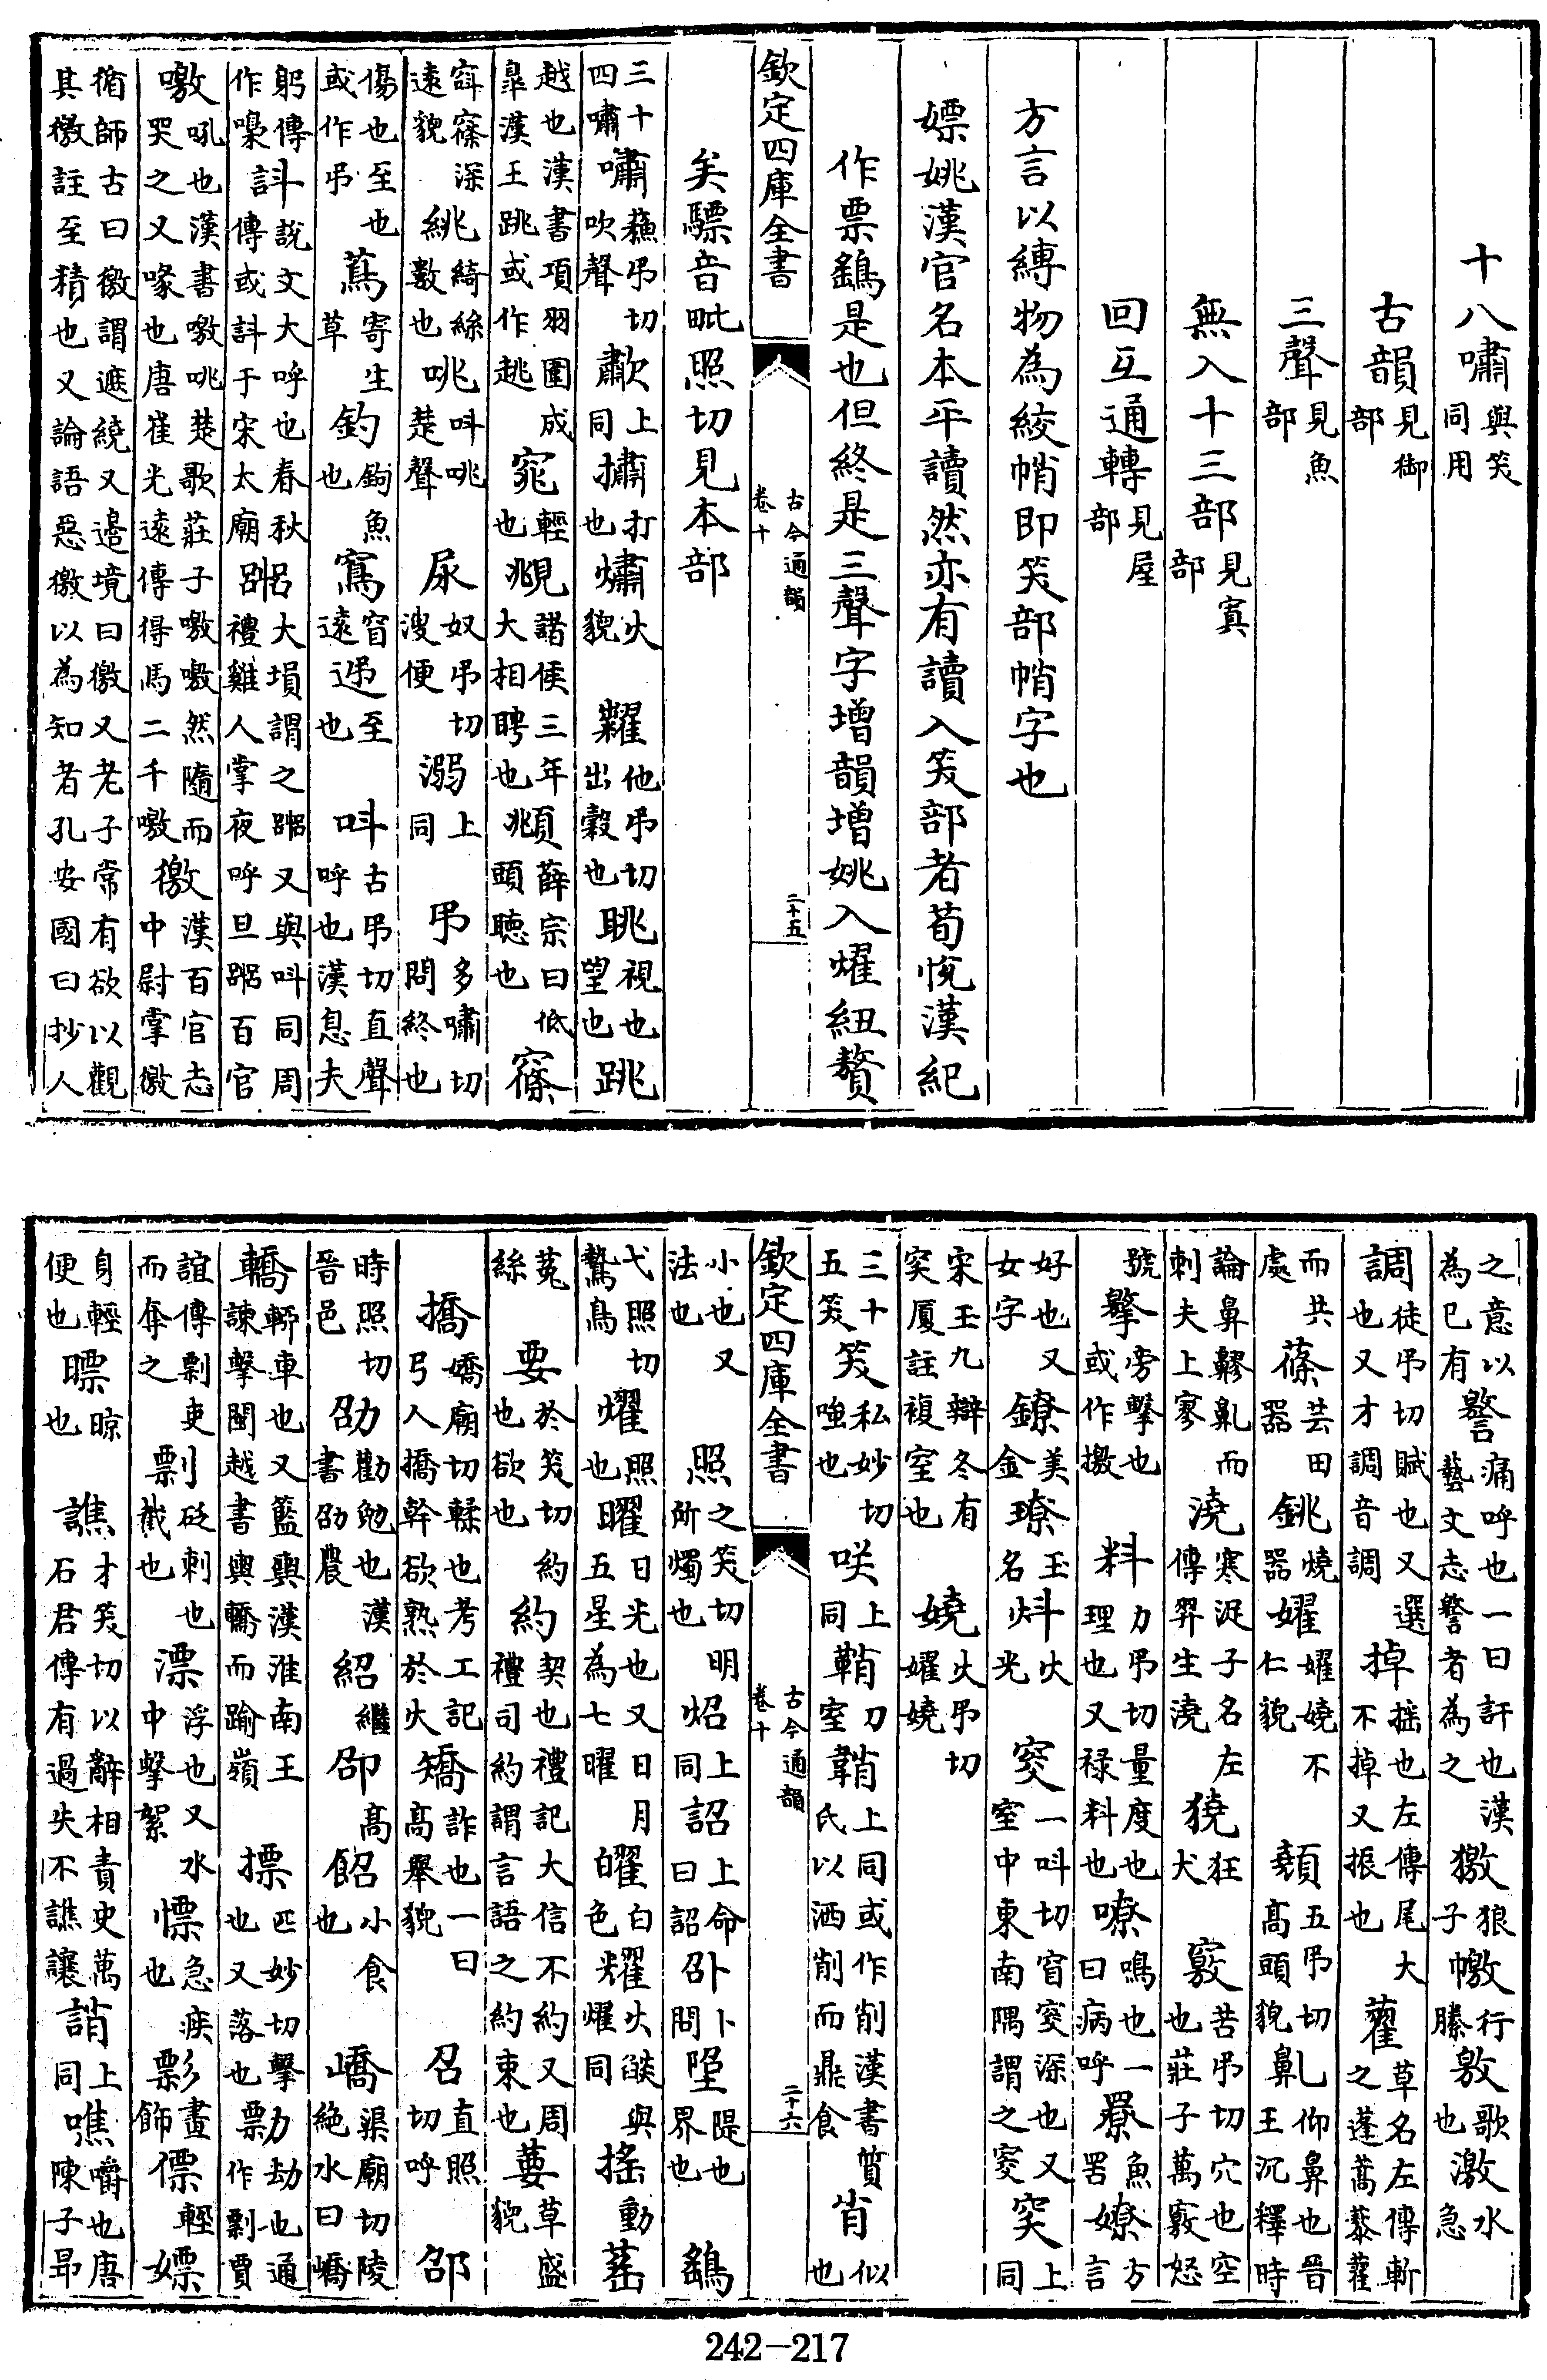 十八嘯與笑同用
古韻見御部
三聲見魚部
無入十三部見寘部
回互通轉見屋部
方言以縛物為絞帩即笑部帩字也
嫖姚漢官名本平讀然亦有讀入笑部者荀悅漢紀
作票鷂是也但終是三聲字增韻增姚入燿紐贅
矣驃音毗照切見本部
欽定四庫全書 古今通韻 卷十 二十五
三十四嘯嘯蘓弔切吹聲歗上同㩋打也熽火貌糶他弔切出穀也眺視也望也跳
越也漢書項羽圍成臯漢王跳或作趒窕輕也覜諸侯三年大相聘也頫薛宗曰低頭聽也窱
窲窱深遠貌絩綺絲數也咷叫咷楚聲尿奴弔切溲便溺上同弔多嘯切問終也
傷也至也或作弔蔦寄生草釣鉤魚也窵窅遠迅至也叫古弔切直聲呼也漢息夫
躬傳作嘄訆說文大呼也春秋傳或訆于宋太廟㗊大塤謂之㗊又與叫同周禮雞人掌夜呼旦㗊百官
噭吼也漢書噭咷楚歌莊子噭噭然隨而哭之又喙也唐崔光遠傳得馬二千噭徼漢百官志中尉掌徼
循師古曰徼謂遮繞又邉境曰徼又老子常有欲以觀其徼註至積也又論語惡徼以為知者孔安國曰抄人
之意以為已有警痛呼也一曰訐也漢藝文志警者為之獥狼子憿行縢敫歌也激水急
調徒弔切賦也又選也又才調音調掉搖也左傳尾大不掉又振也藋草名左傳斬之蓬蒿藜藋
而共處蓧芸田器銚燒器嬥嬥嬈不仁貌顤五弔切高頭貌鼽仰鼻也晉王沉釋時
論鼻䫜鼽而刺夫上寥澆寒浞子名左傳羿生澆獟狂犬竅苦弔切穴也空也莊子萬竅怒
號撆旁擊也或作撽料力弔切量度也理也又禄料也嘹鳴也一曰病呼尞魚罟嫽方言
好也又女字鐐美金璙玉名炓火光窔一叫切窅窔深也又室中東南隅謂之窔突上同
宋玉九辯冬有突厦註複室也嬈火弔切嬥嬈
三十五笑笑私妙切嗤也咲上同鞘刀室鞩上同或作削漢書質氏以洒削而鼎食肖似也
欽定四庫全書 古今通韻 卷十 二十六
小也又法也照之笑切明所燭也炤上同詔上命曰詔卲卜問㘳隄也界也鷂
弋照切鷙鳥燿照也曜日光也又日月五星為七曜㿑白色耀火燄與燿同搖動䔄
菟絲要於笑切約也欲也約契也禮記大信不約又周禮司約謂言語之約約束也葽草盛貌
撟嬌廟切輮也考工記弓人撟幹欲熟於火矯詐也一曰高舉貌召直照切呼邵
時照切晉邑劭勸勉也漢書劭農紹繼卲高䬰小食也嶠渠廟切陵絶水曰嶠
轎轎車也又籃輿漢淮南王諫擊閩越書輿轎而踰嶺摽匹妙切擊也又落也剽劫也通作剽賈
誼傳剽吏而奪之剽砭刺也截也漂浮也又水中擊絮慓急疾也彯畫飾僄輕嫖
身輕便也瞟晾也譙才笑切以辭相責史萬石君傳有過失不譙讓誚上同噍嚼也唐陳子昻
242-217